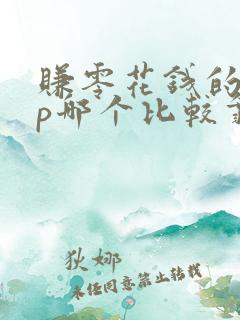 赚零花钱的
p哪个比较
狄娜
未经同意禁止转载